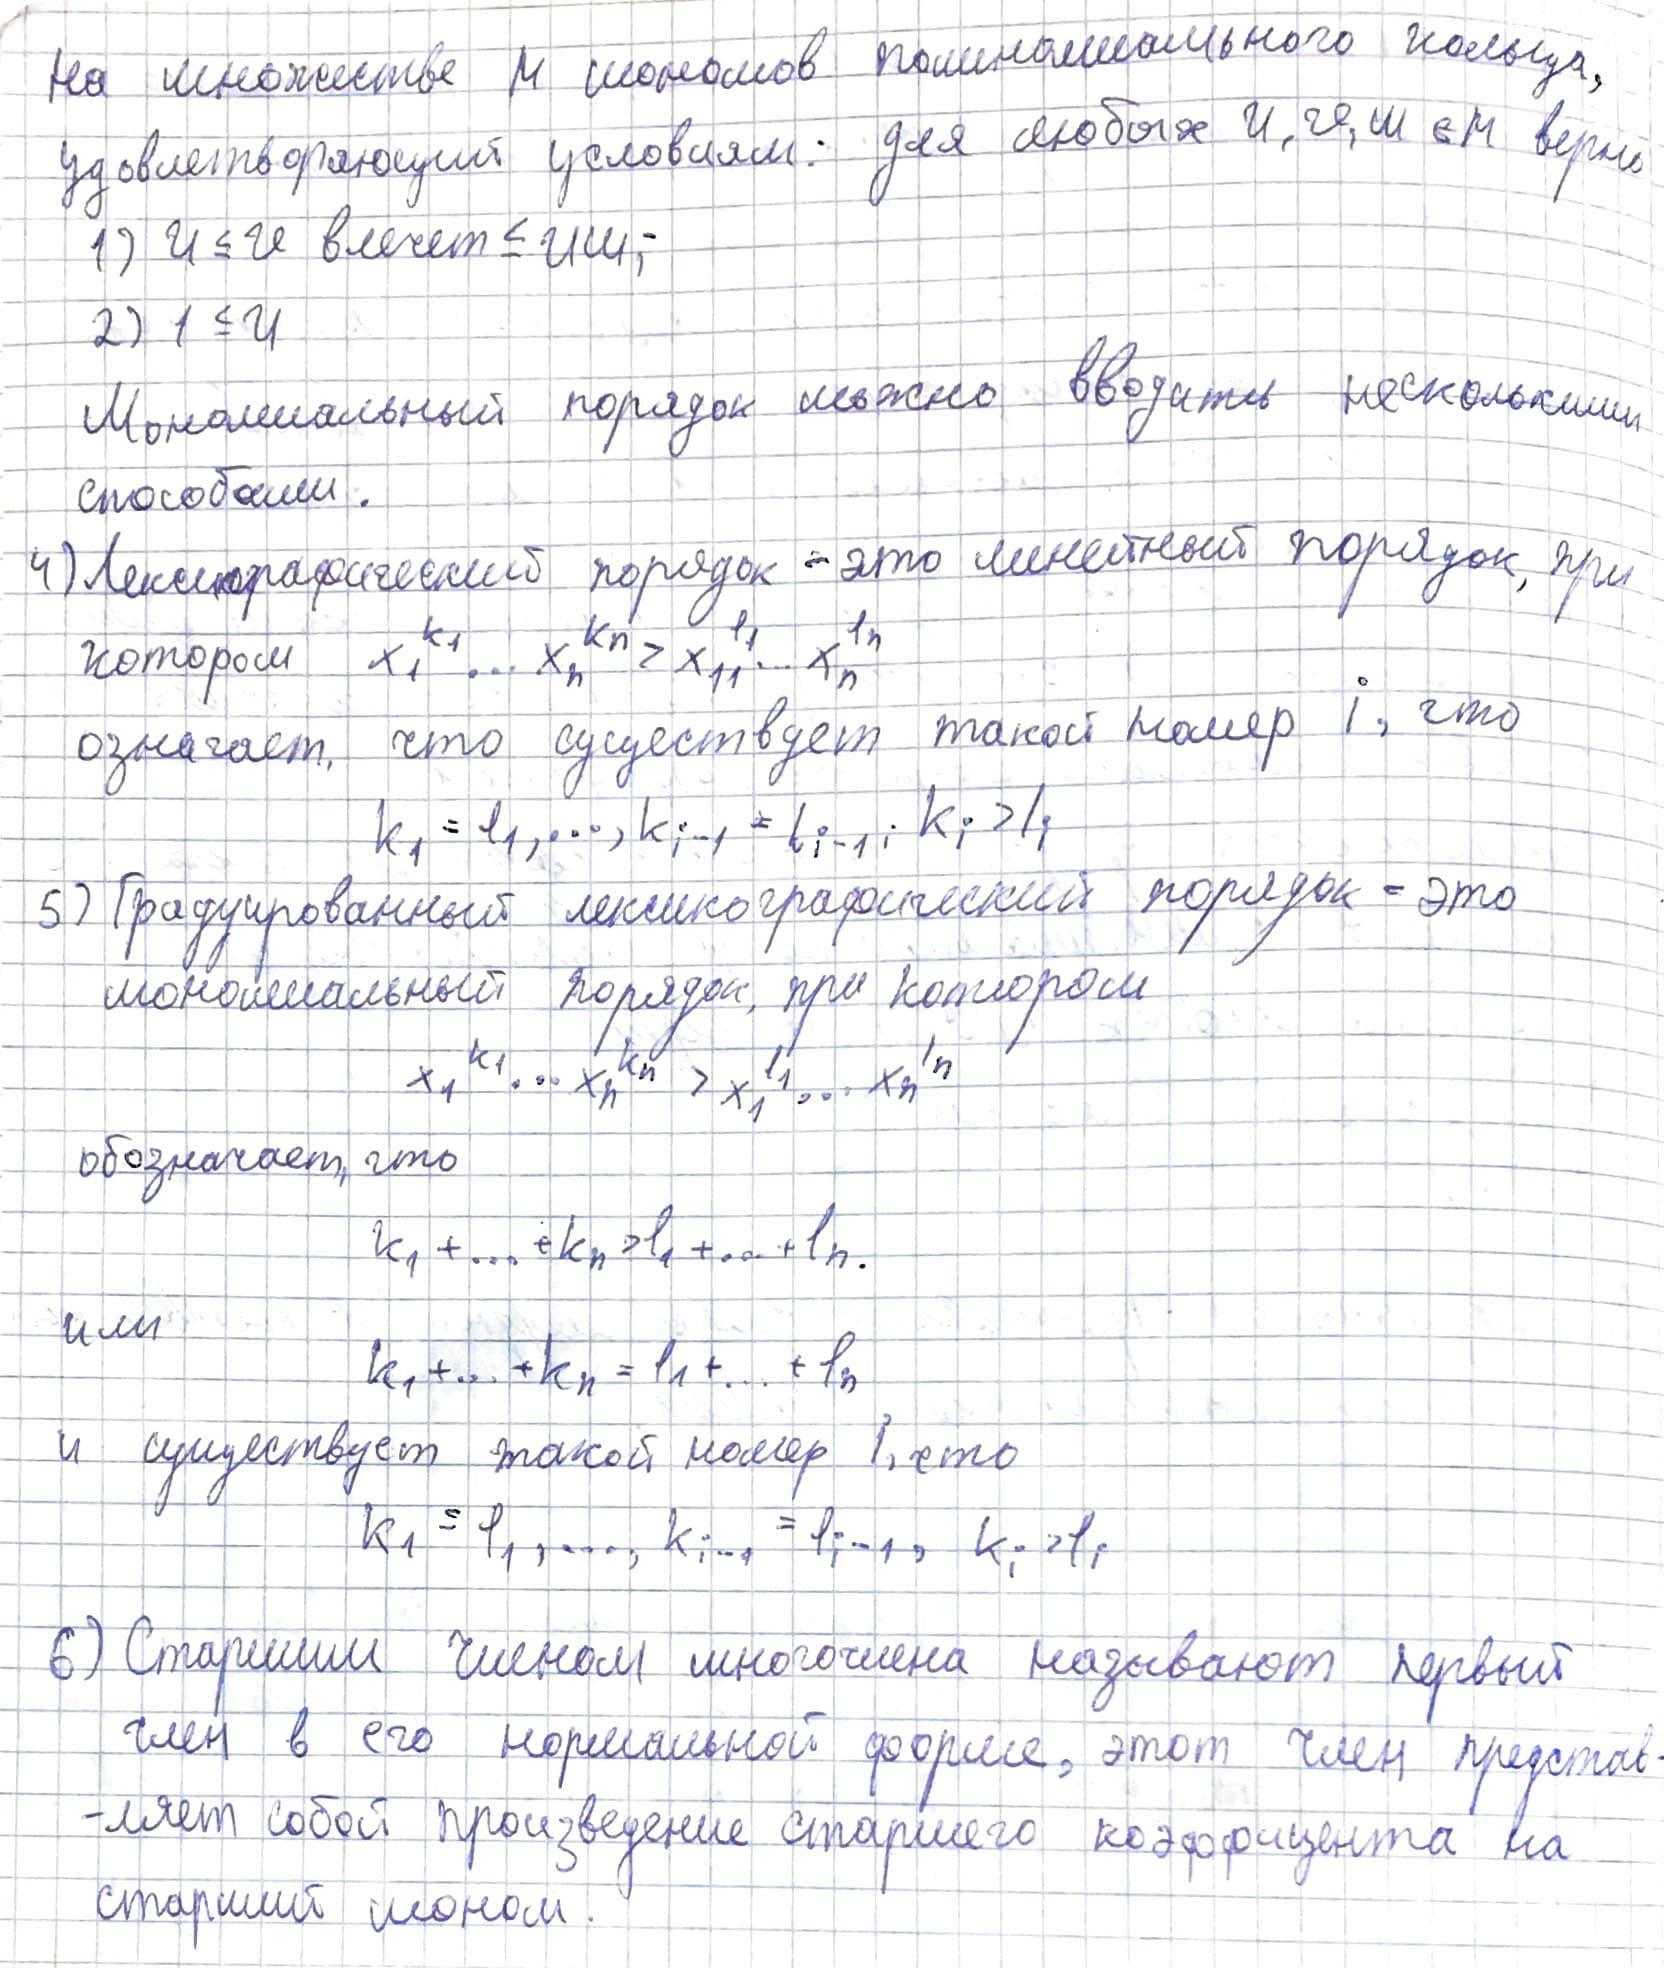 на множестве M мономов полиномиального кольца,
удовлетворяющий условиям: для любых u, v, w ∈ M верно
1) u ≤ v влечет ≤ uw;
2) 1 ≤ u
Мономиальный порядок можно вводить несколькими
способами.
4) Лексикографический порядок - это линейный порядок, при
котором x_1^{k_1} ... x_n^{k_n} > x_{11}^{l_1} ... x_n^{l_n}
означает, что существует такой номер i, что
k_1 = l_1, ..., k_{i-1} = l_{i-1}, k_i > l_i
5) Градуированный лексикографический порядок - это
мономиальный порядок, при котором
x_1^{k_1} ... x_n^{k_n} > x_1^{l_1} ... x_n^{l_n}
обозначает, что
k_1 + ... + k_n > l_1 + ... + l_n.
или
k_1 + ... + k_n = l_1 + ... + l_n
и существует такой номер i, что
k_1 = l_1, ..., k_{i-1} = l_{i-1}, k_i > l_i
6) Старшим членом многочлена называют первый
член в его нормальной форме, этот член представ-
-ляет собой произведение старшего коэффицента на
старший моном.